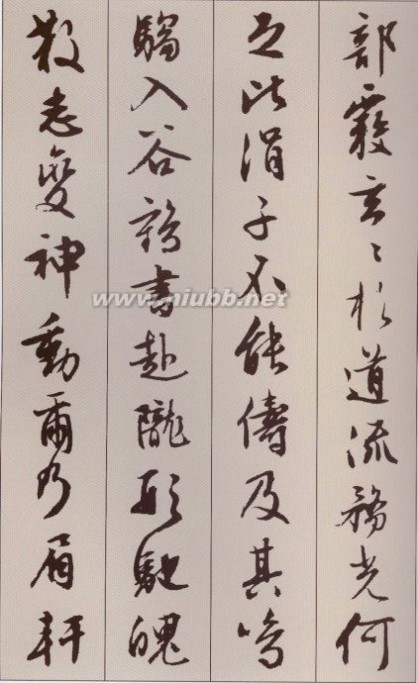 部覈玄〻於道流務光何
足比涓子不能儔及其鳴
騶入谷鶴書赴隴形馳魄
散志變神動爾乃眉軒
www.niubb.net